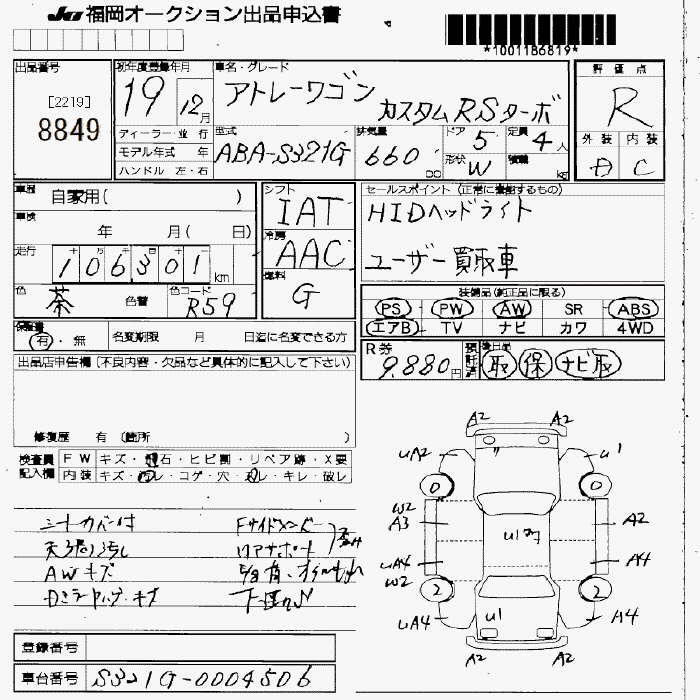 JU 福岡オークション出品申込書
*1001186819*
出品番号
[2219]
8849
初年度登録年月
19
12月
ディーラー・並行
モデル年式 年
ハンドル 左・右
車名・グレード
アトレーワゴン
カスタムRSターボ
型式
ABA-S321G
排気量
660
cc
ドア 5
定員 4人
形状 W
積載 kg
評価点
R
外装 内装
D C
車歴
自家用( )
車検
年 月( 日)
走行
106301 km
色 茶
色替
色コード R59
シフト
IAT
冷房
AAC
燃料
G
セールスポイント(正常に機能するもの)
HIDヘッドライト
ユーザー買取車
装備品(純正品に限る)
PS PW AW SR ABS
エアB TV ナビ カワ 4WD
保証書
有・無
名変期限 月 日迄に名変できる方
R券
9,880円
預託済
後日品
取 保 ナビ取
出品店申告欄(不良内容・欠品など具体的に記入して下さい)
修復歴 有(箇所 )
検査員記入欄
FW キズ・飛石・ヒビ割・リペア跡・X要
内装 キズ・汚レ・コゲ・穴・スレ・キレ・破レ
シートカバー付
天張り汚し
AWキズ
Fサイドメンバー
リアサポート
A2
A2
UA2
U1
0
0
W2
A3
A2
U1
UA4
W2
A4
2
2
U1
UA4
A4
A2
A2
登録番号
車台番号
S321G-0004506